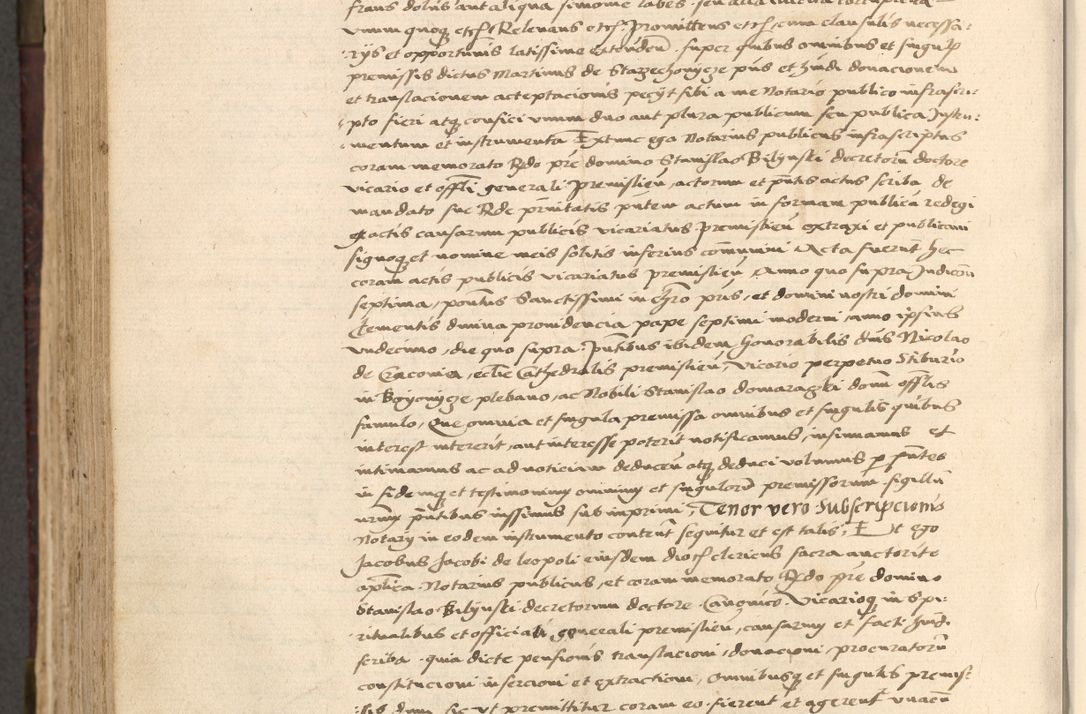 fraus dolus aut aliqua simonie labes seu alia
unum quoqz etcz Relevans etcz Promittens etcz cum clausulis necessa:
:rÿs et opportunis latissime extenden̄. super quibus omnibus et singul
premissis dictus Martinus de Stazechowycze p̄us et hm̄di donacionem
et translacionem acceptacionis pecÿt sibi a me Notario publico infrascri:
:pto fieri atqz confici unum duo aut plura publicum seu publica Instru:
:mentum et instrumenta Extunc ego Notarius publicus infrascriptus
coram memorato R̄do pr̄e domino Stanislao Bilÿnski decretorū doctore
vicario et offl̄i generali Premislien̄, actorum et p̄ntis actus scriba de
mandato sue R̄de p̄rnitatis p̄utem actum in formam publica redegi
ex actis causarum publicis vicariatus Premislien̄ extraxi et publicavi
signoqz et nomine meis solitis inferius com̄univi Acta fuerūt hec
coram actis publicis vicariatus premislien̄, Anno quo supra, Indiccōn
septima, pontus Sanctissimi in Chr̄o pris, et domini nostri domini
Clementis divina providencia pape septimi moderni, anno ipsius
undecimo, die quo supra. P̄ntibus ibidem Honorabilis dn̄is Nicolao
de Cracovia, eccl̄ie Cathedralis premislien̄, Vicario perpetuo Tiburio
in Bozÿowÿcze plebano, ac Nobili Stanislao domaraczki domī offl̄is
famulo, Que omnia et singula premissa omnibus et singulis quibus
interest intererit, aut interesse poterit notificamus, insinuamus et
intimamus ac ad noticiam deducen̄ atqz deduci volumus p p̄ntes
in fidemqz et testimonium omnium et singulorū premissorum sigillū
nr̄um p̄ntibus iussimus subimprimi, Tenor vero Subscripcionis
Notarÿ in eodem instrumento contenti sequitur et est talis, Et ego
Jacobus Jacobi de leopoli eiusdem diocz clericus sacra auctorite
aplica Notarius publicus, et coram memorato R̄do pr̄e domino
Stanislao Bilÿnski decretorum doctore Canonico Vicarioqz in spi:
:ritualibus et officiali generali premislien̄, causarum et facti hm̄di
scriba quia dicte pensionis translacioni, donacioni, procuratorū
constitucioni insercioni et extractioni, Omnibusqz et singulis premis:
:sis dum sic ut premittitur coram eo fierent et agerent unacū